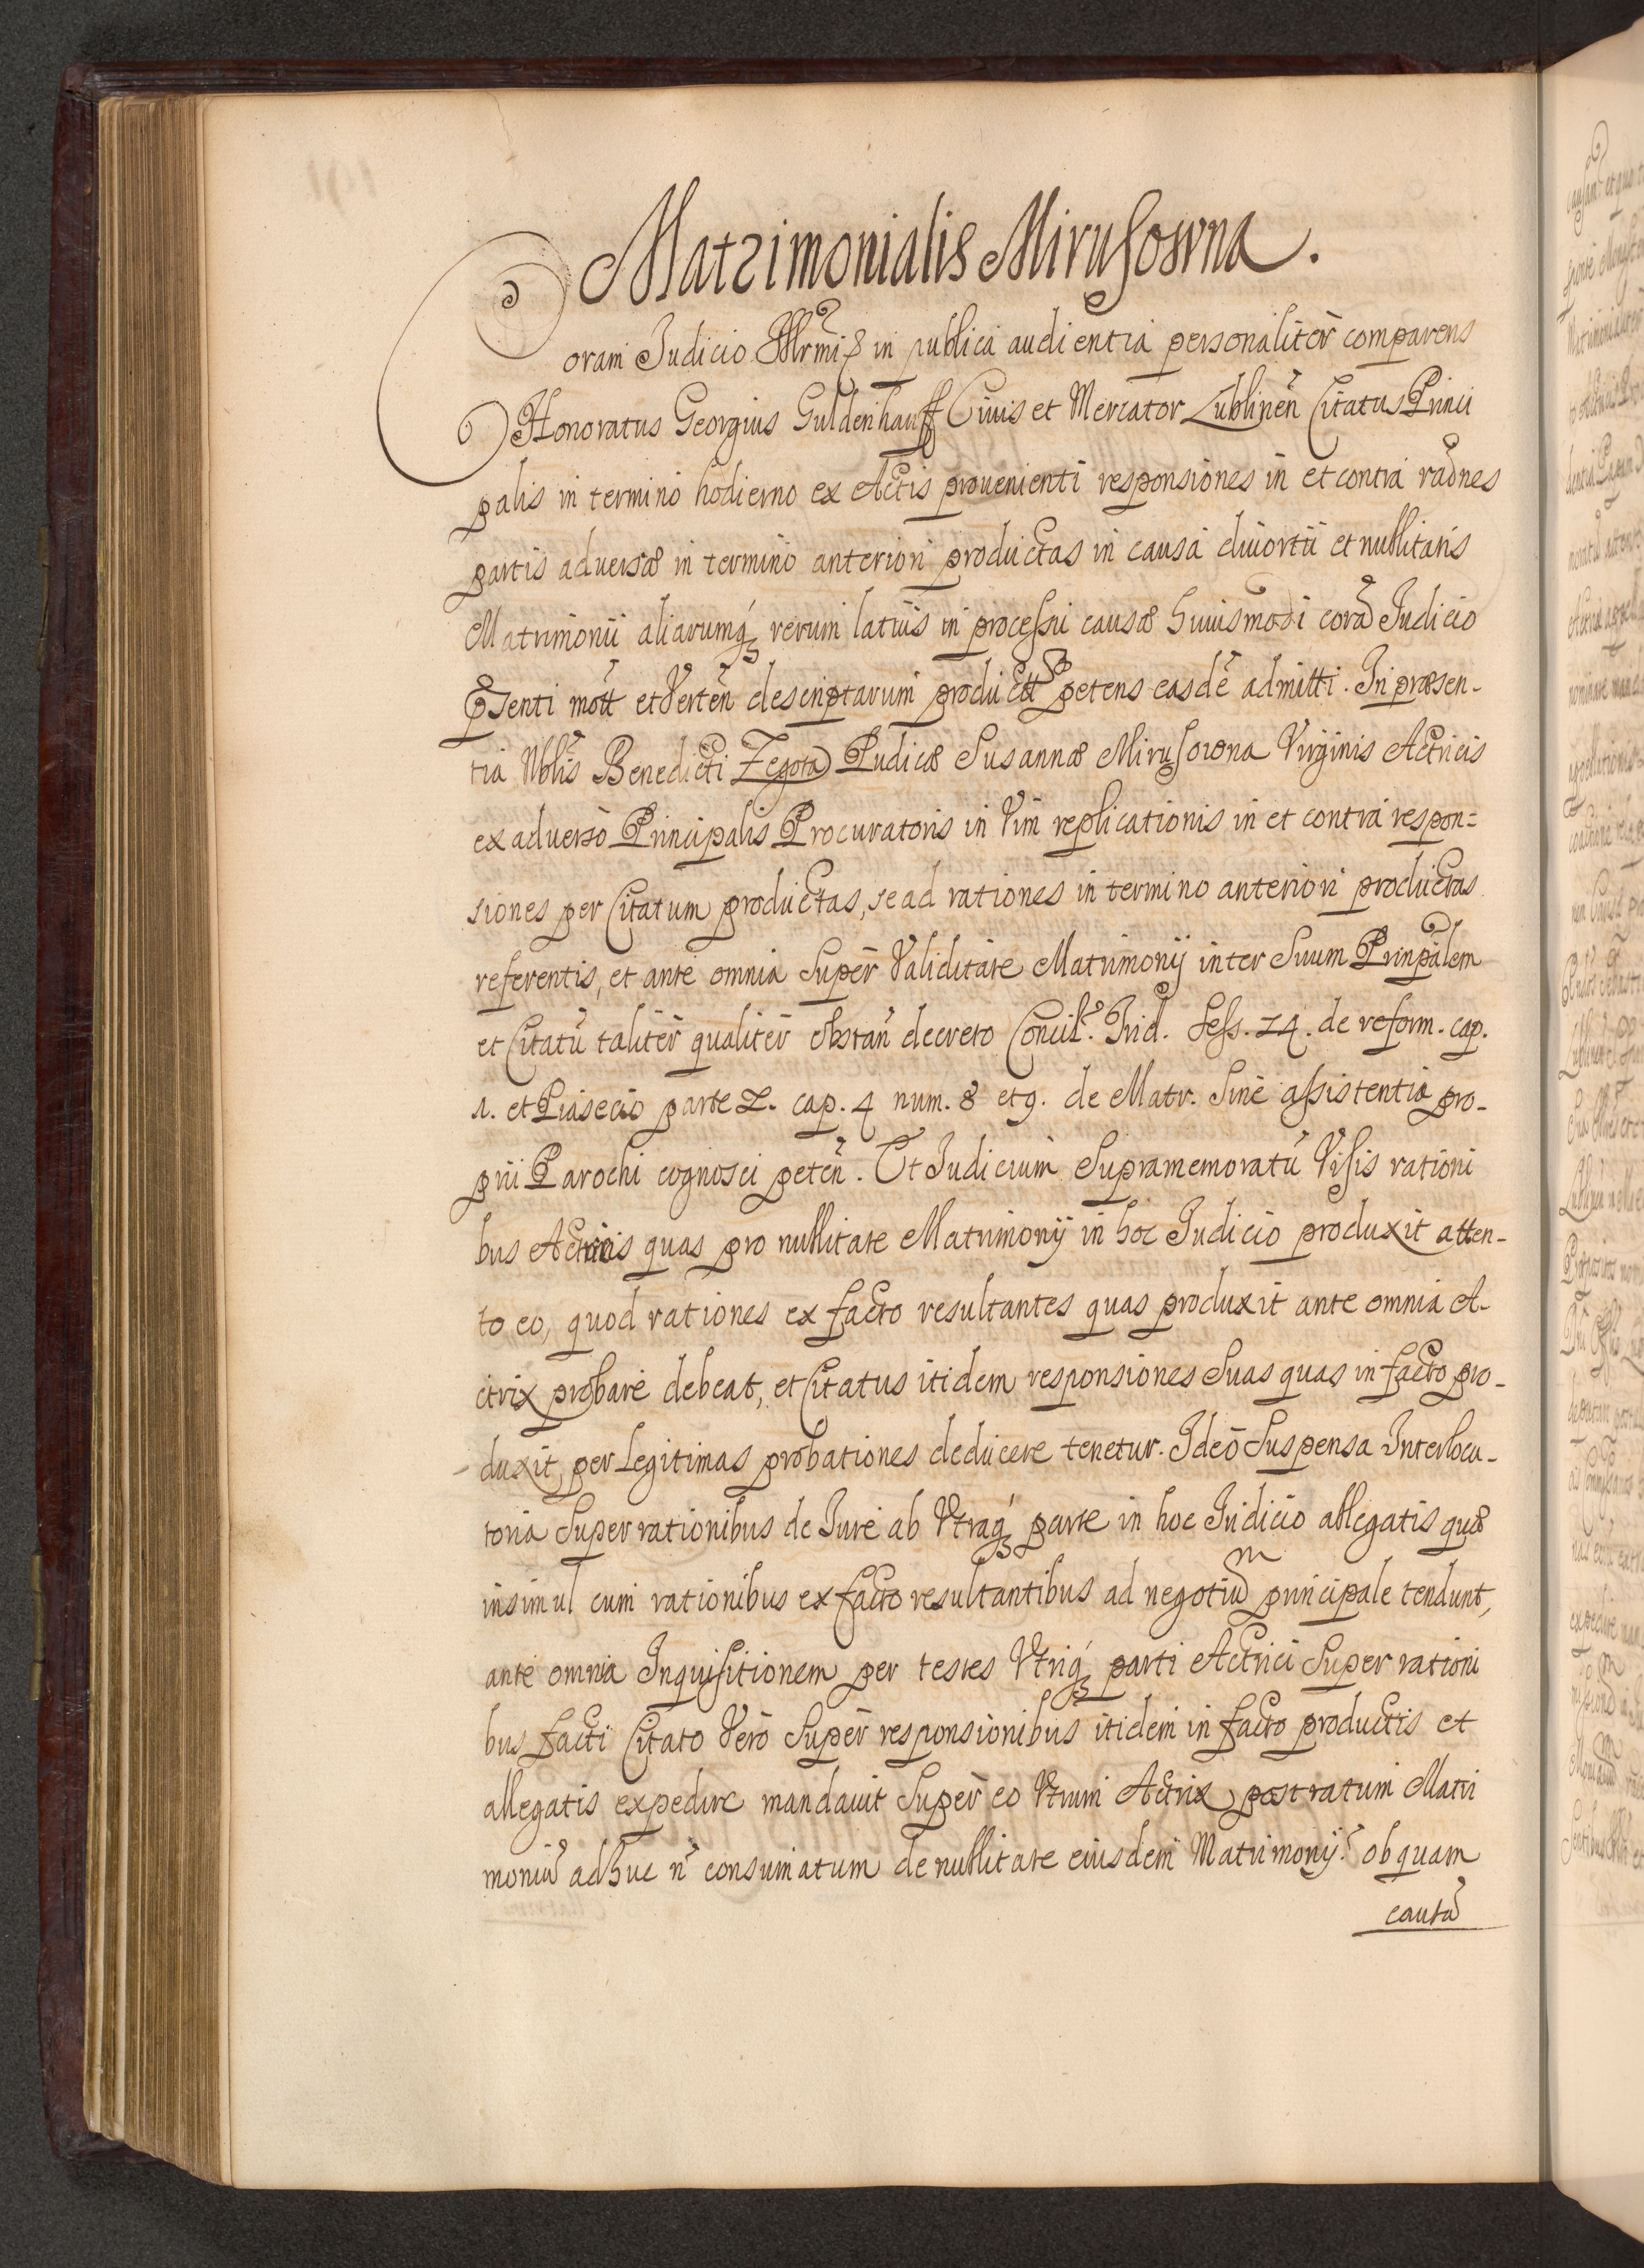 Matrimonialis Mirusowna.
Coram Judicio Illrmi in publica audientia personaliter comparens
Honoratus Georgius Guldenhauff Civis et Mercator Lublinen̄ Citatus Princi
palis in termino hodierno ex Actis prouenienti responsiones in et contra rãones
partis adversæ in termino anteriori productas in causa diuortii et nullitatis
Matrimonii aliarumq́ꝫ rerum latius in processu causæ huiusmodi corã Judicio
p̃senti mott et Verten̄ descriptarum product petens easdē admitti. In præsen-
tia Nblis Benedicti Zegota Pudicæ Susannæ Mirusowna Virginis Actricis
ex adverso Principalis Procuratoris in Vim replicationis in et contra respon=
siones per Citatum productas, se ad rationes in termino anteriori productas
referentis, et ante omnia Super Validitate Matrimonij inter Suum Prinpãlem
et Citatū taliter qualiter obstan̄ decreto Concil. Trid. Sess. 24. de reform. cap.
1. et Piasecio parte 2. cap. 4 num. 8 et 9. de Matr. Sine assistentia pro-
prii Parochi cognosci peten̄. Et Judicium Supramemoratū Visis rationi
bus Actricis quas pro nullitate Matrimonij in hoc Judicio produxit atten-
to eo, quod rationes ex facto resultantes quas produxit ante omnia A-
ctrix probare debeat, et Citatus itidem responsiones Suas quas in facto pro-
duxit, per Legitimas probationes deducere tenetur. Ideo Suspensa Interlocu-
toria Super rationibus de Jure ab Vtraq́ꝫ parte in hoc Judicio allegatis quæ
insimul cum rationibus ex facto resultantibus ad negotiũ principale tendunt,
ante omnia Inquisitionem per testes Vtriq́ꝫ parti Actrici Super rationi
bus facti Citato Vero Super responsionibus itidem in facto productis et
allegatis expedire mandauit Super eo Vtrum Actrix post ratum Matri
moniũ adhuc n̄ consumatum de nullitate eiusdem Matrimonij ob quam
causã